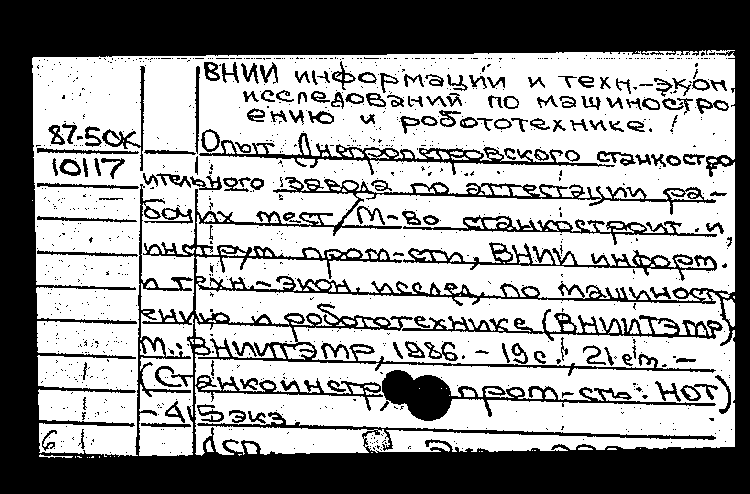 ВНИИ информации и техн.-экон.
исследований по машиностро-
ению и робототехнике.
87-50К Опыт Днепропетровского станкостро
10117 ительного завода по аттестации ра-
бочих мест/М-во станкостроит. и
инструм. пром-сти, ВНИИ информ.
и техн.-экон. исслед. по машиностр
ению и робототехнике (ВНИИТЭМР)
М.: ВНИИТЭМР, 1986. - 19 с., 21 см. -
(Станкоинстр, пром-сть: НОТ)
- 415 экз.
6 ДСП.